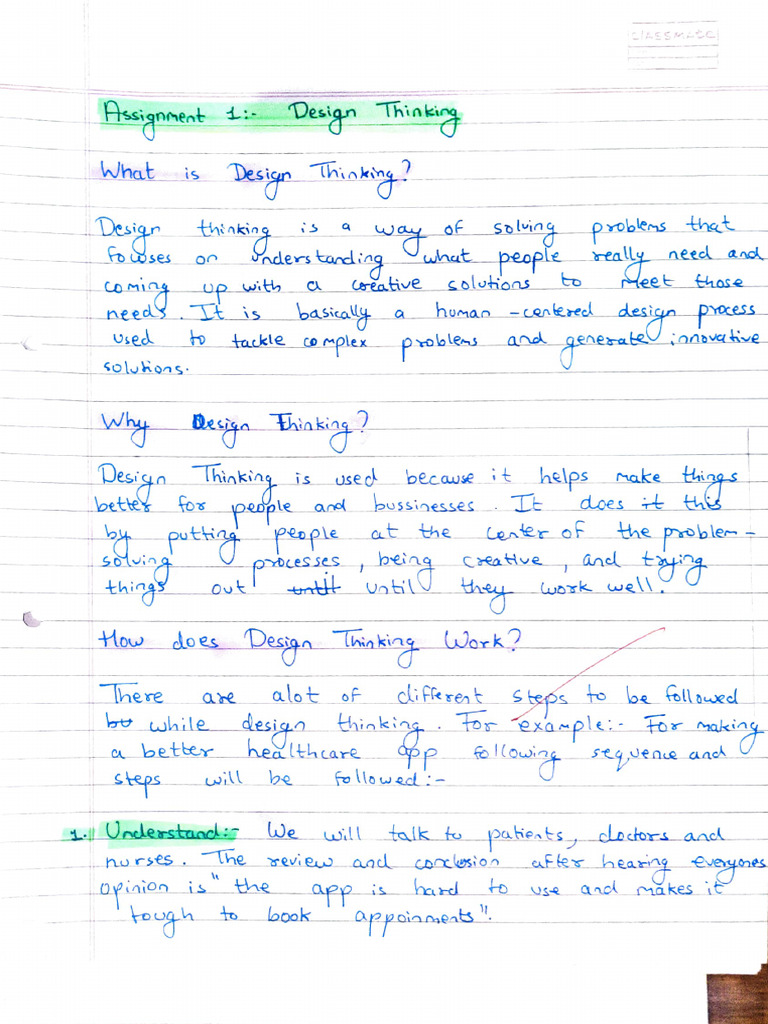 CLASSMATE
Assignment 1:- Design Thinking
What is Design Thinking?
Design thinking is a way of solving problems that
focuses on understanding what people really need and
coming up with a creative solutions to meet those
needs. It is basically a human-centered design process
used to tackle complex problems and generate innovative
solutions.
Why Design Thinking?
Design Thinking is used because it helps make things
better for people and bussinesses. It does it this
by putting people at the center of the problem-
solving processes, being creative, and trying
things out until until they work well.
How does Design Thinking Work?
There are alot of different steps to be followed
but while design thinking. For example:- For making
a better healthcare app following sequence and
steps will be followed:-
1. Understand:- We will talk to patients, doctors and
nurses. The review and conclosion after hearing everyones
opinion is "the app is hard to use and makes it
tough to book appoinments".